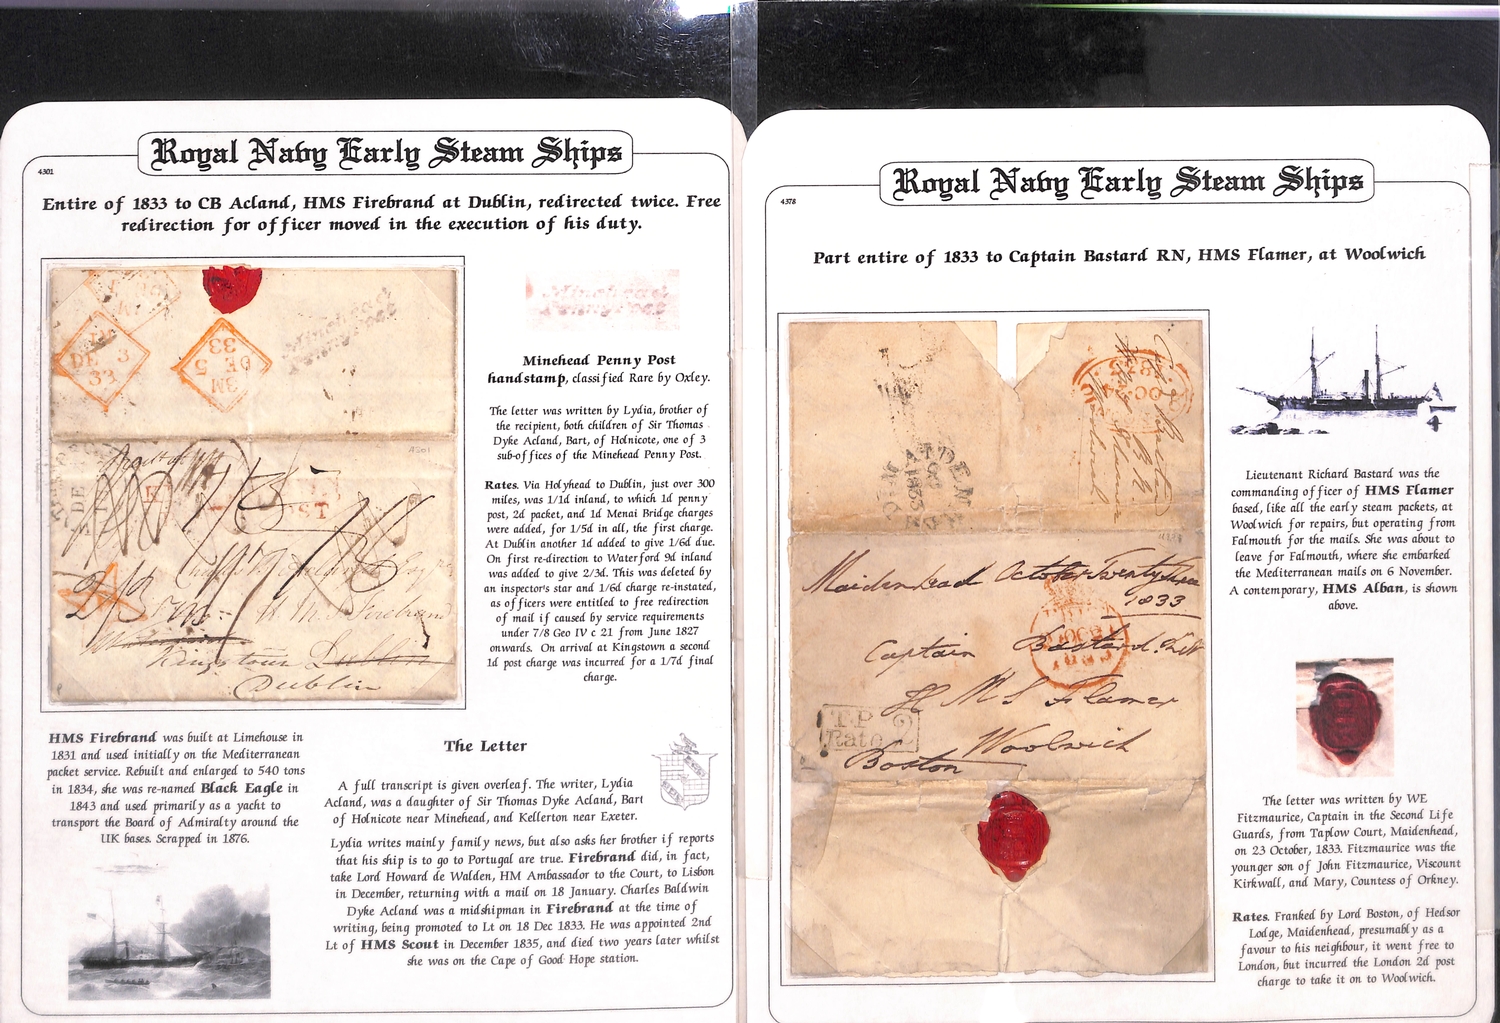 Royal Navy Early Steam Ships
4301
Entire of 1833 to CB Acland, HMS Firebrand at Dublin, redirected twice. Free
redirection for officer moved in the execution of his duty.
Minehead
Penny Post
Minehead
Penny Post
DE 3
33
3M
DE 5
33
A301
H M S Firebrand
Kingstown Dublin
Dublin
Minehead Penny Post
handstamp, classified Rare by Oxley.
The letter was written by Lydia, brother of
the recipient, both children of Sir Thomas
Dyke Acland, Bart, of Holnicote, one of 3
sub-offices of the Minehead Penny Post.
Rates. Via Holyhead to Dublin, just over 300
miles, was 1/1d inland, to which 1d penny
post, 2d packet, and 1d Menai Bridge charges
were added, for 1/5d in all, the first charge.
At Dublin another 1d added to give 1/6d due.
On first re-direction to Waterford 9d inland
was added to give 2/3d. This was deleted by
an inspector's star and 1/6d charge re-instated,
as officers were entitled to free redirection
of mail if caused by service requirements
under 7/8 Geo IV c 21 from June 1827
onwards. On arrival at Kingstown a second
1d post charge was incurred for a 1/7d final
charge.
HMS Firebrand was built at Limehouse in
1831 and used initially on the Mediterranean
packet service. Rebuilt and enlarged to 540 tons
in 1834, she was re-named Black Eagle in
1843 and used primarily as a yacht to
transport the Board of Admiralty around the
UK bases. Scrapped in 1876.
The Letter
A full transcript is given overleaf. The writer, Lydia
Acland, was a daughter of Sir Thomas Dyke Acland, Bart
of Holnicote near Minehead, and Kellerton near Exeter.
Lydia writes mainly family news, but also asks her brother if reports
that his ship is to go to Portugal are true. Firebrand did, in fact,
take Lord Howard de Walden, HM Ambassador to the Court, to Lisbon
in December, returning with a mail on 18 January. Charles Baldwin
Dyke Acland was a midshipman in Firebrand at the time of
writing, being promoted to Lt on 18 Dec 1833. He was appointed 2nd
Lt of HMS Scout in December 1835, and died two years later whilst
she was on the Cape of Good Hope station.
Royal Navy Early Steam Ships
4378
Part entire of 1833 to Captain Bastard RN, HMS Flamer, at Woolwich
Maidenhead October Twenty three
1833
Captain Bastard R.N.
H M S Flamer
Woolwich
Boston
T.P
Rate 2
Lieutenant Richard Bastard was the
commanding officer of HMS Flamer
based, like all the early steam packets, at
Woolwich for repairs, but operating from
Falmouth for the mails. She was about to
leave for Falmouth, where she embarked
the Mediterranean mails on 6 November.
A contemporary, HMS Alban, is shown
above.
The letter was written by WE
Fitzmaurice, Captain in the Second Life
Guards, from Taplow Court, Maidenhead,
on 23 October, 1833. Fitzmaurice was the
younger son of John Fitzmaurice, Viscount
Kirkwall, and Mary, Countess of Orkney.
Rates. Franked by Lord Boston, of Hedsor
Lodge, Maidenhead, presumably as a
favour to his neighbour, it went free to
London, but incurred the London 2d post
charge to take it on to Woolwich.